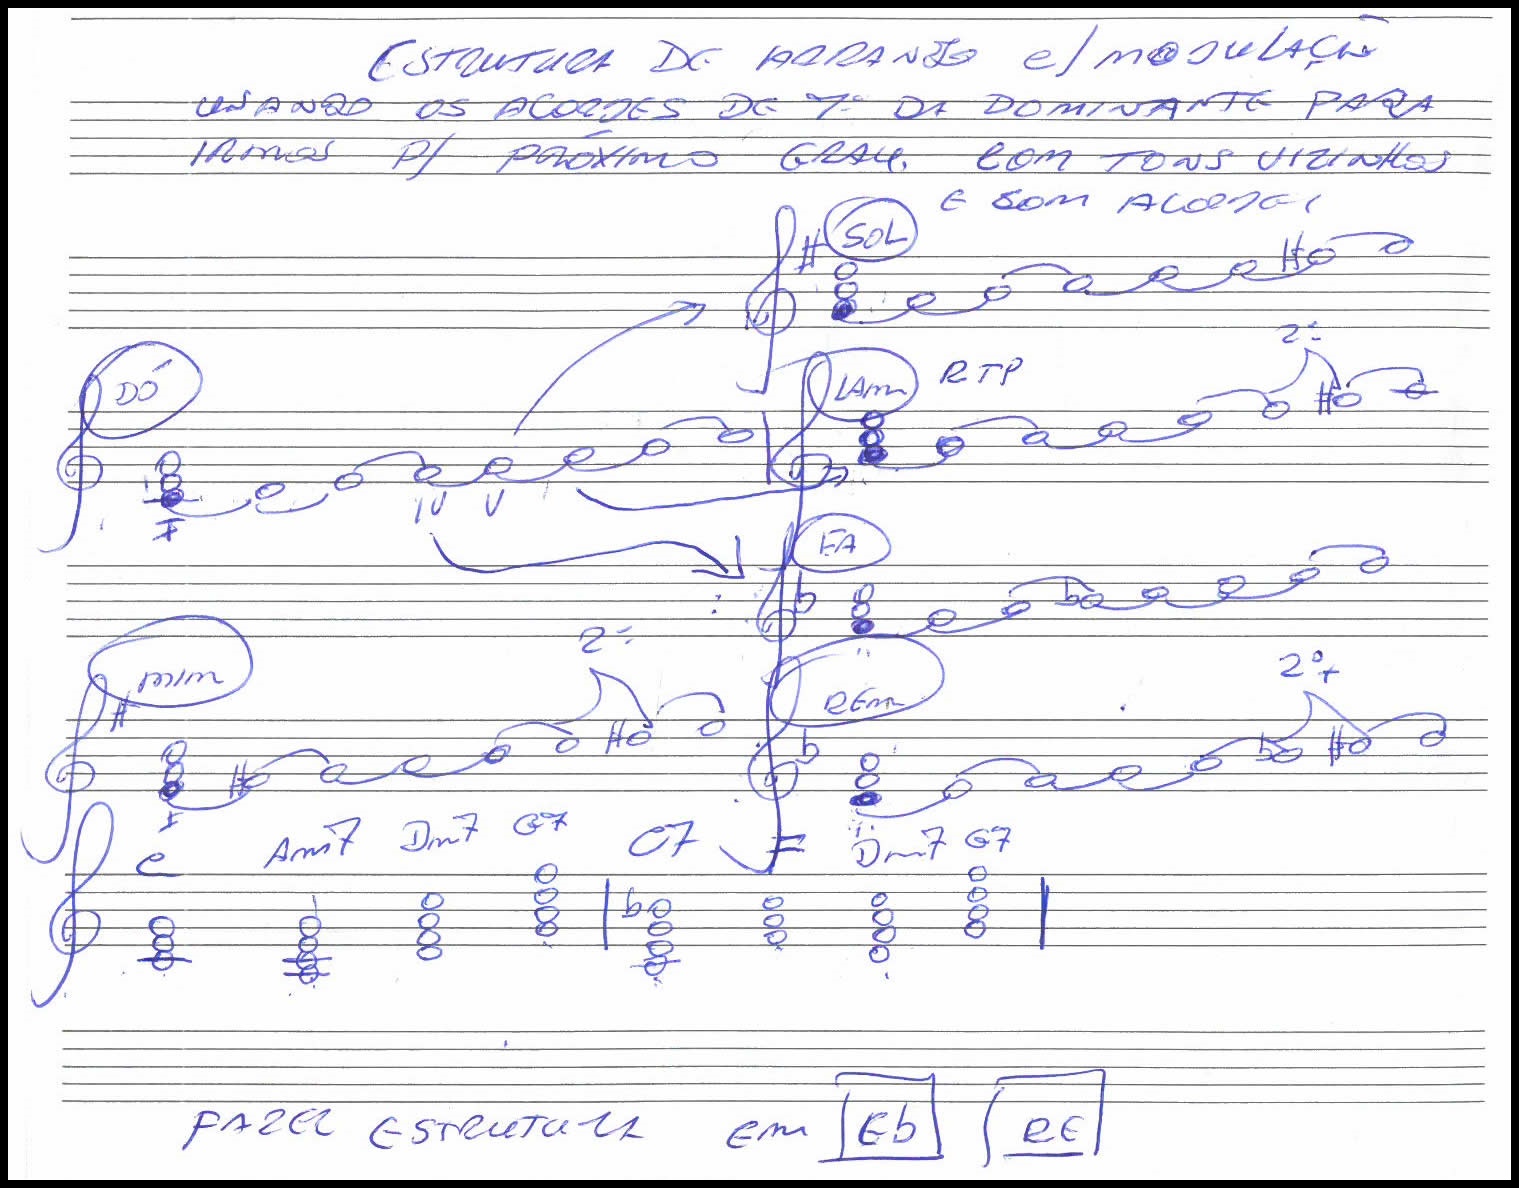 ESTRUTURA DE ARRANJO C/ MODULAÇÃO
USANDO OS ACORDES DE 7ª DA DOMINANTE PARA
IRMOS P/ PRÓXIMO GRAU. COM TONS VIZINHOS
E SOM ACORDES
SOL
2ª
DÓ LAm RTP
I IV V
FA
2ª 2ª+
MIM REm
I
C Am7 Dm7 G7 C7 F Dm7 G7
FAZER ESTRUTURA EM Eb RE